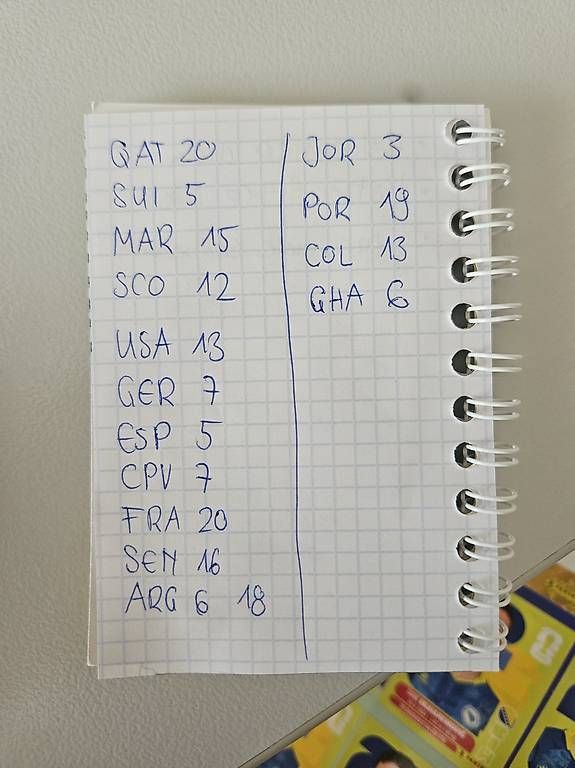 QAT 20
SUI 5
MAR 15
SCO 12
USA 13
GER 7
ESP 5
CPV 7
FRA 20
SEN 16
ARG 6 18
JOR 3
POR 19
COL 13
GHA 6